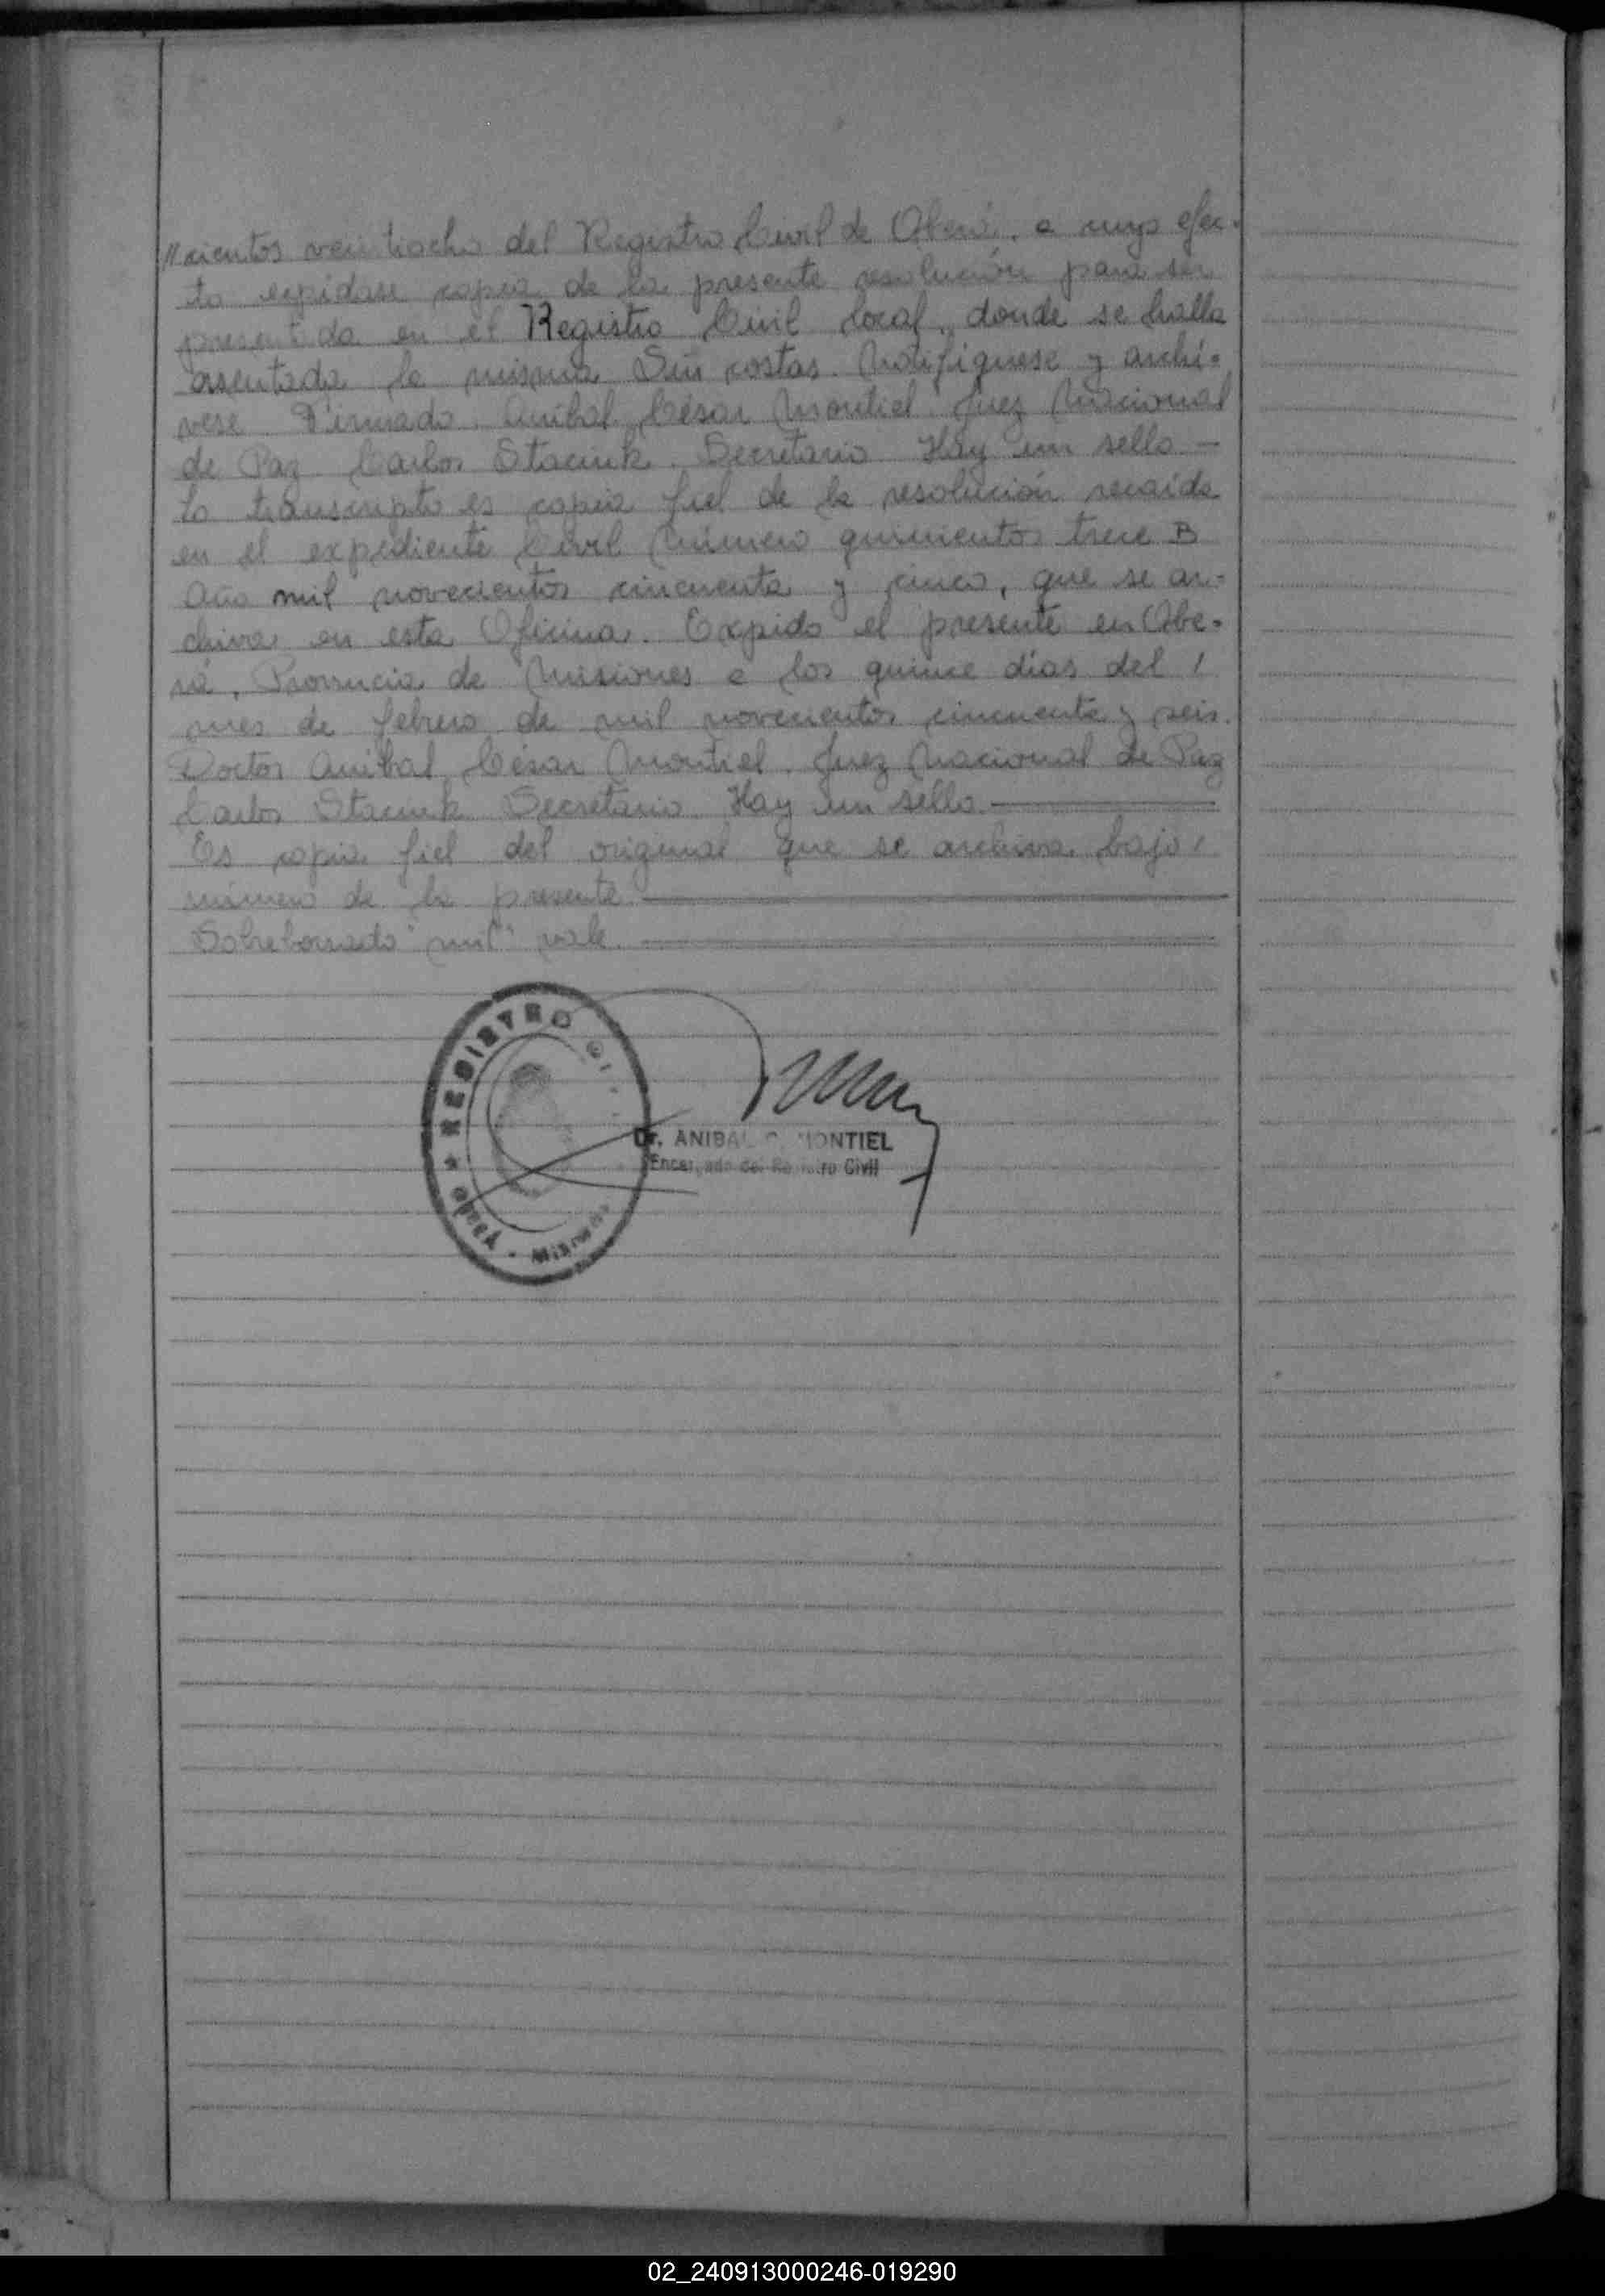 //cientos veintiocho del Registro Civil de Oberá, a cuyo efec-
to expídase copia de la presente resolución para ser
presentada en el Registro Civil local, donde se halla
asentada la misma Sin costas. Notifíquese y archí-
vese. Firmado. Aníbal César Montiel Juez Nacional
de Paz Carlos Staciuk. Secretario Hay un sello —
Lo transcripto es copia fiel de la resolución recaída
en el expediente Civil Número quinientos trece B
Año mil novecientos cincuenta y cinco, que se ar-
chiva en esta Oficina. Expido el presente en Obe-
rá, Provincia de Misiones a los quince días del /
mes de febrero de mil novecientos cincuenta y seis.
Doctor Aníbal César Montiel. Juez Nacional de Paz
Carlos Staciuk Secretario. Hay un sello.—
Es copia fiel del original que se archiva bajo /
número de la presente.—
Sobreborrado "mil" vale.—
REGISTRO CI
OBERÁ - Misiones
Dr. ANIBAL C. MONTIEL
Encargado del Registro Civil
02_240913000246-019290